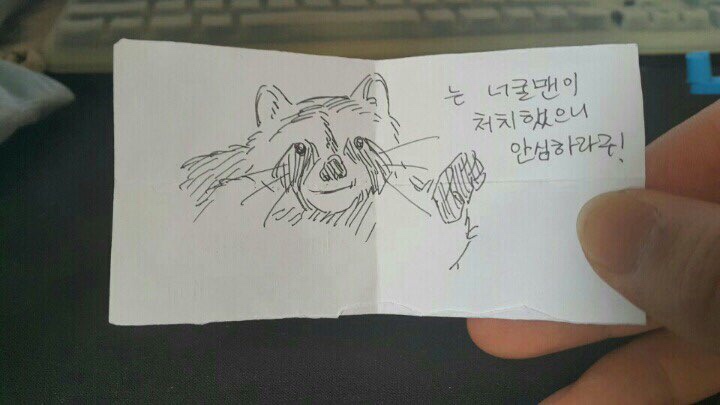 는 너굴맨이
처치했으니
안심하라구!